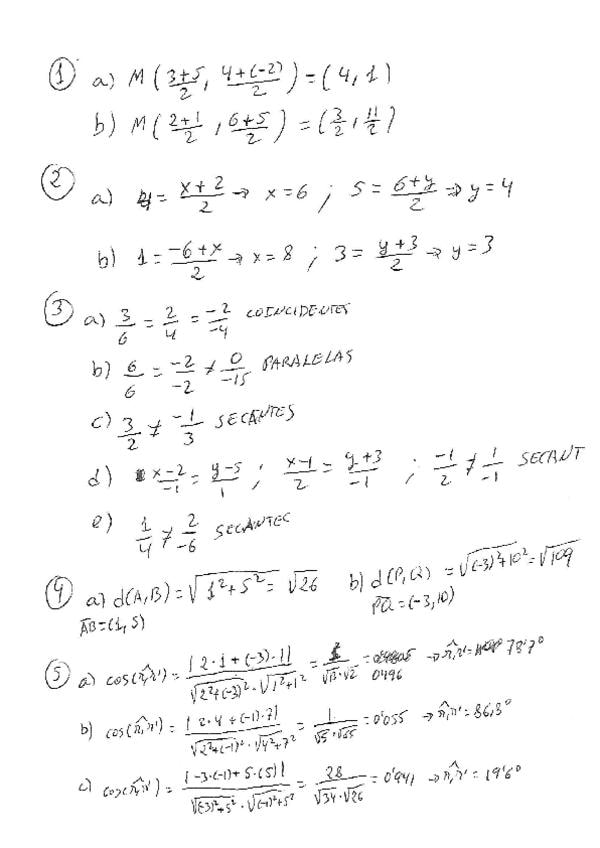 ① a) M ( (3+5)/2 , (4+(-2))/2 ) = (4, 1)
b) M ( (2+1)/2 , (6+5)/2 ) = (3/2, 11/2)
② a) 4 = (x+2)/2 → x = 6 ; 5 = (6+y)/2 ⇒ y = 4
b) 1 = (-6+x)/2 → x = 8 ; 3 = (y+3)/2 → y = 3
③ a) 3/6 = 2/4 = -2/-4 COINCIDENTES
b) 6/6 = -2/-2 ≠ 0/-15 PARALELAS
c) 3/2 ≠ -1/3 SECANTES
d) (x-2)/-1 = (y-5)/1 ; (x-1)/2 = (y+3)/-1 ; -1/2 ≠ 1/-1 SECANT
e) 1/4 ≠ 2/-6 SECANTES
④ a) d(A,B) = √(1²+5²) = √26 b) d(P,Q) = √((-3)²+10²) = √109
AB = (1, 5) PQ = (-3, 10)
⑤ a) cos(r,r') = |2·1+(-3)·1| / (√(2²+(-3)²)·√(1²+1²)) = 1/(√13·√2) = 0'196 → r,r' = 78'7°
b) cos(r,r') = |2·4+(-1)·7| / (√(2²+(-1)²)·√(4²+7²)) = 1/(√5·√65) = 0'055 → r,r' = 86,8°
c) cos(r,r') = |-3·(-1)+5·(5)| / (√((-3)²+5²)·√((-1)²+5²)) = 28/(√34·√26) = 0'941 → r,r' = 19'6°